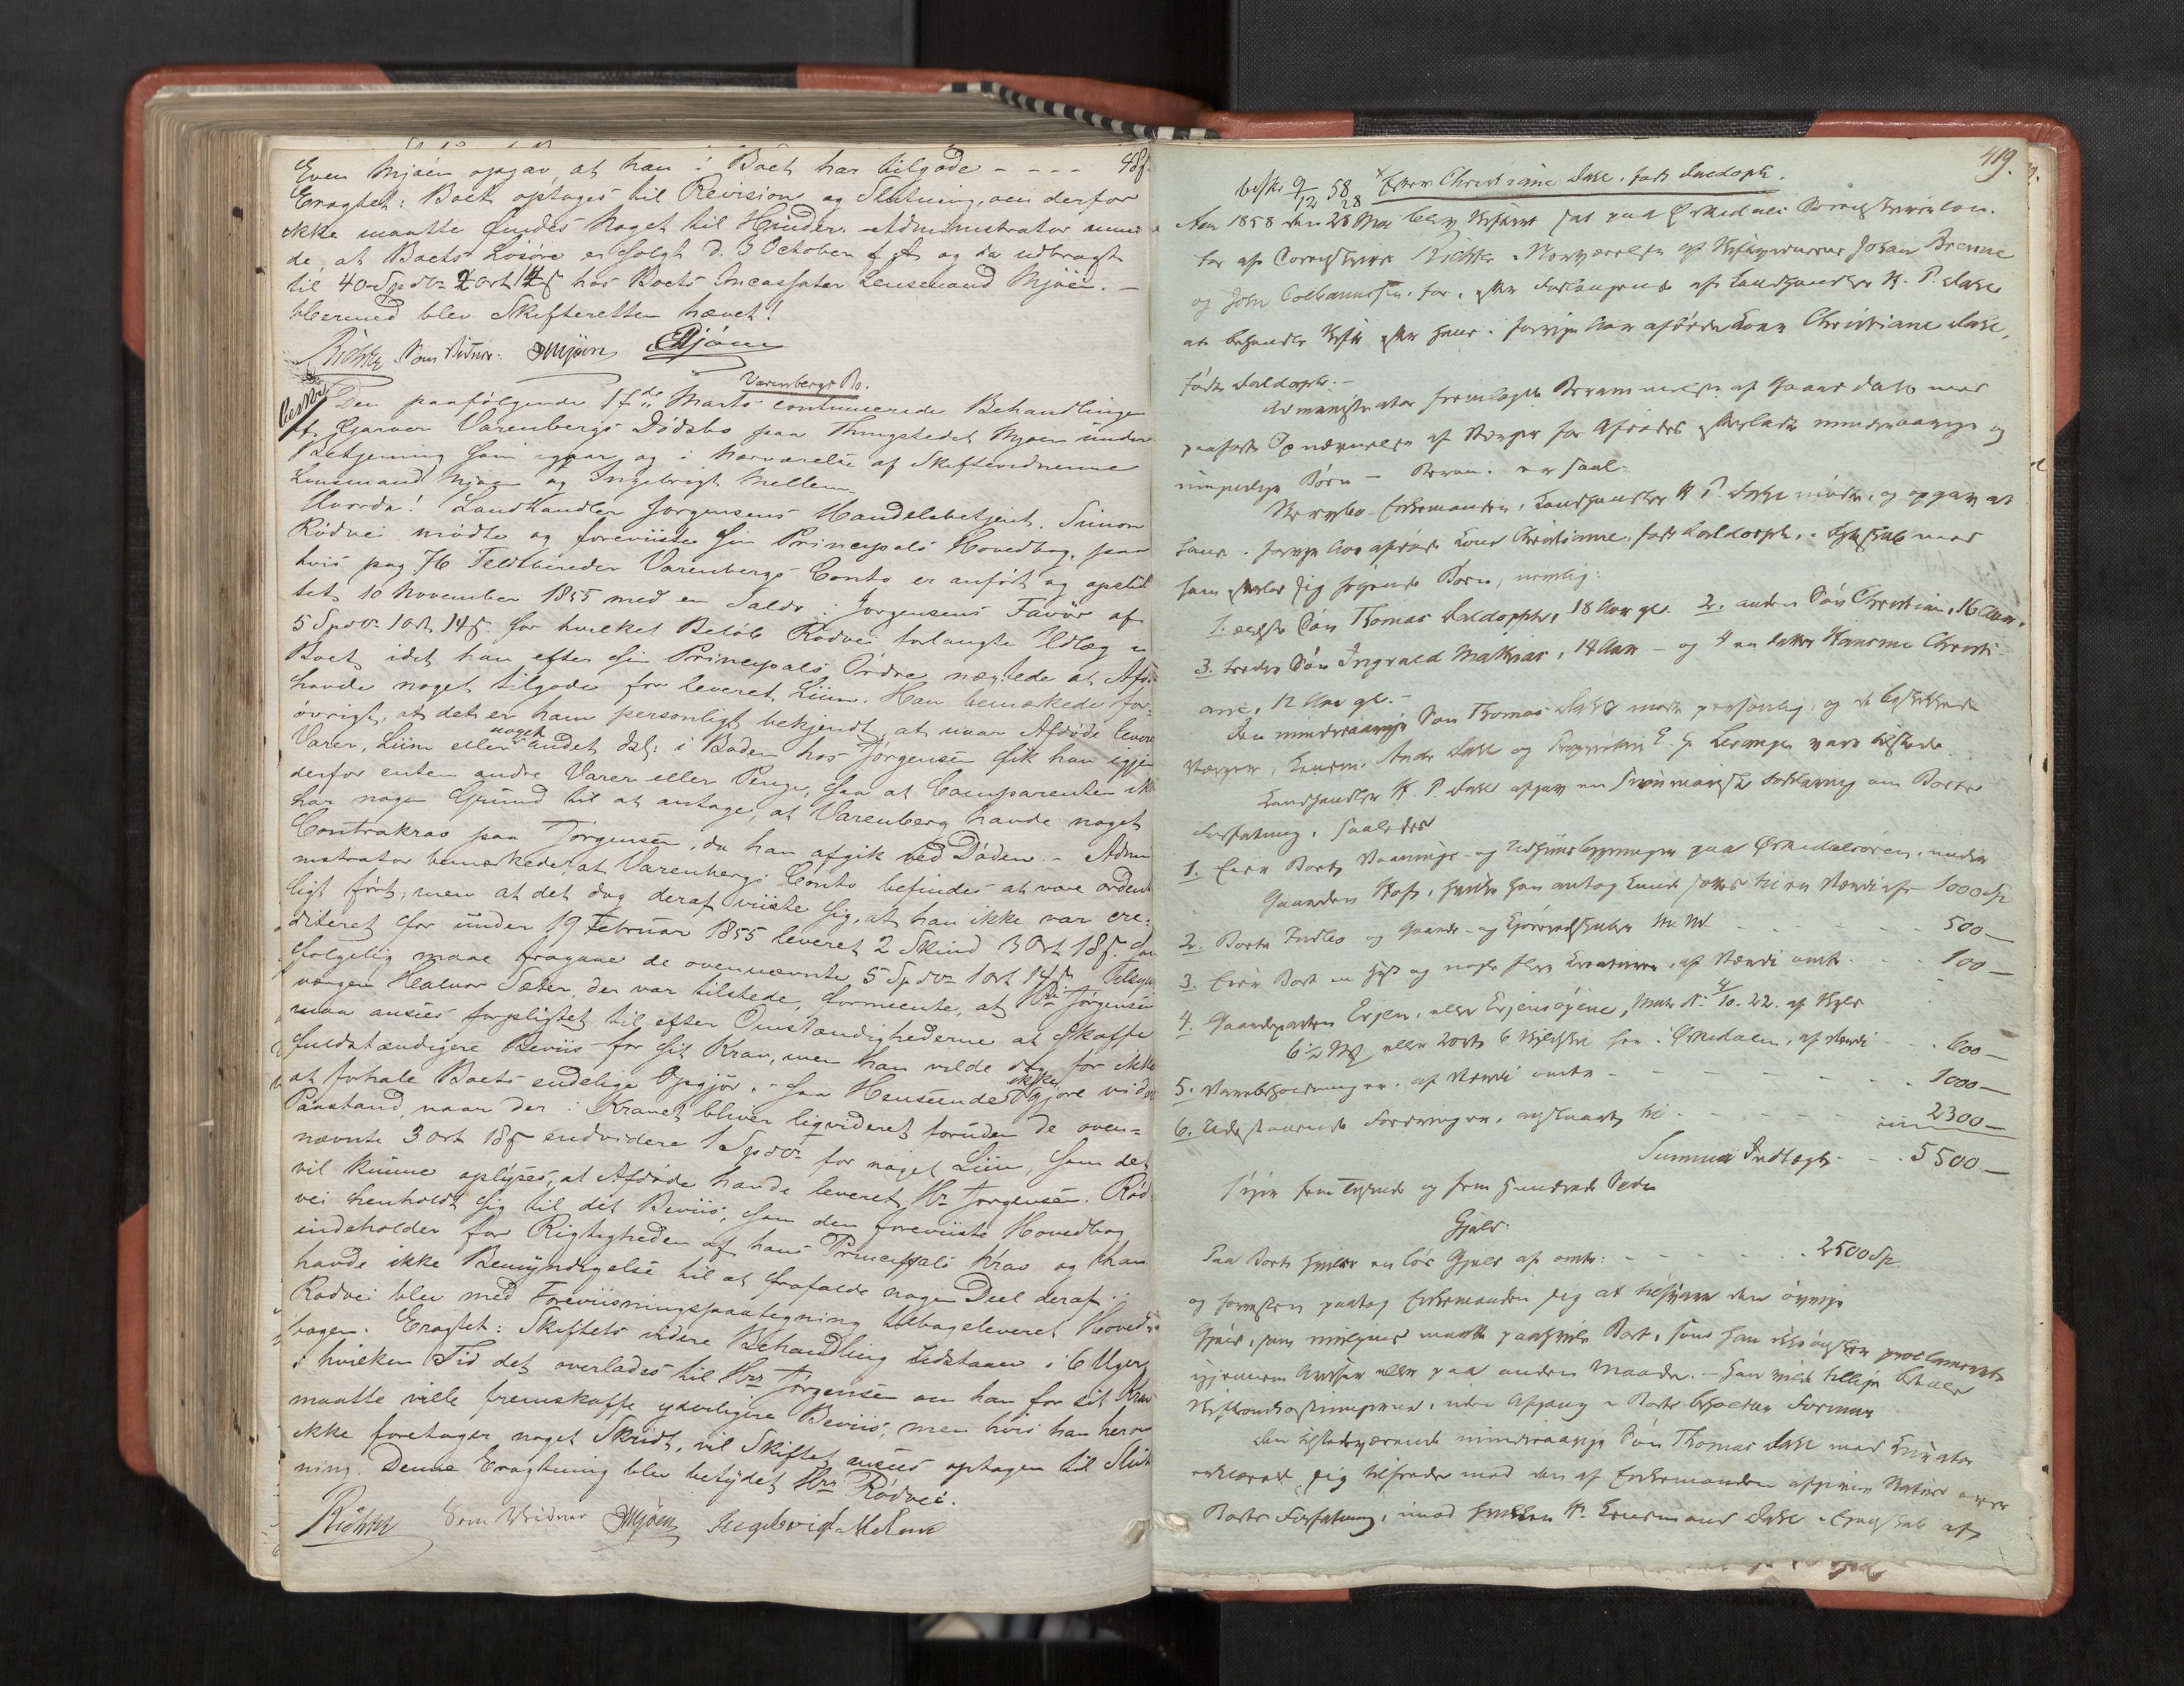 Even Mjøen opgav, at han i Boet har tilgode - - - 48ß.
Eragtet: Boet optages til Revision og Slutning, om derfor
ikke maatte findes Noget til Hinder. Administrator
de, at Boets Løsøre er solgt d. 3 October f. A. og da udbragt
til 40 Spdlr 2 ort 14 ß hos Boets Incassator Lensmand Mjøen. -
Hermed blev Skifteretten hævet!
Richter Som Vidner: Mjøen EMjøen
Varenbergs Bo.
Den paafølgende Marts continuerede Behandlingen
af Garver Varenbergs Dødsbo paa Thingstedet Mjøen under
Betjening som igaar og i Nærværelse af Skiftevidnerne
Lensmand Mjøen og Ingebrigt Mellem.
Hvorda! Landhandler Jørgensens Handelsbetjent, Simon
Rødvei mødte og foreviiste sin Principals Hovedbog, paa
hvis pag 76 Feldbereder Varenbergs Conto er anført og opstil
let 10 November 1855 med en Saldo i Jørgensens Favør af
5 Spdlr 1 ort 14ß. for hvilket Beløb Rødvei forlangte Udlæg i
Boet, idet han efter sin Principals Ordre nægtede at Afdø
havde noget tilgode for leveret Liim. Han bemærkede for-
øvrigt, at det er ham personligt bekjendt, at naar Afdøde lever
Varer, Liim eller noget andet i Boden hos Jørgensen fik han igjen
derfor enten andre Varer eller Penge, saa at Comparenten ik
har nogen Grund til at antage, at Varenberg havde noget
Contrakrav paa Jørgensen, da han afgik ved Døden. - Admi
nistrator bemærkede, at Varenbergs Conto befindes at være ordent
ligt ført, men at det dog deraf viiste sig, at han ikke var cre-
diteret for under 19 Februar 1855 leveret 2 Skind 3 Ort 18ß.
følgelig maae fragaae de ovennævnte 5 Spdlr 1 ort 14ß. Tilsyns
værgen Halvor Sæter, der var tilstede, formeente, at Hr Jørgensen
maa ansees forpligtet til efter Omstændighederne at skaffe
fuldstændigere Beviis for sit Krav, men han vilde dog for ikke
at forhale Boets endelige Opgjør, - saa Henseende ikke gjøre vider
Paastand, naar der i Kravet bliver liqvideret foruden de oven-
nævnte 3 ort 18ß endvidere 1 Spdlr for noget Liim, som det
vil kunne oplyses, at Afdøde havde leveret Hr Jørgensen. Rød
vei henholdt sig til det Beviis, som den foreviiste Hovedbog
indeholder for Rigtigheden af hans Principals Krav og han
havde ikke Bemyndigelse til at frafalde nogen Deel deraf.
Rødvei blev med Foreviisningspaategning tilbageleveret Hoved
bogen. Eragtet: Skiftets videre Behandling udstaaer i 6 Uger,
i hvilken Tid det overlades til Hr Jørgensen om han for sit Krav
maatte ville fremskaffe yderligere Beviis, men hvis han herom
ikke foretager noget Skridt, vil Skiftet ansees optagen til Slut
ning. Denne Eragtning blev betydet Hr Rødvei.
Richter Som Vidner Mjøen Ingebrigt Mellem
419.
beskr 9/12 58 Efter Christiane Dahl, født Daldorph.
Aar 1858 den 28 Mai blev Skifteret sat paa Ørkedals Sorenskrivergaard
for af Sorenskriver Richter i Nærværelse af Skiftevidnerne Johan Brenne
og John Colbannsen, for, efter Forlangende af Landhandler H. P. Dahl
at behandle Skifte efter hans i forrige Aar afdøde Kone Christiane Dahl,
født Daldorph. -
Administrator fremlagde Berammelse af Gaars Dato med
paaført Opnævnelse af Værger for Afdødes efterladte mindreaarige og
umyndige Børn - Beram. er saal-
Enkemanden, Landhandler H P. Dahl mødte, og opgav at
hans i forrige Aar afdøde Kone Christiane, født Daldorph, i Ægteskab med
ham efterlod sig følgende Børn, nemlig:
1. ældste Søn Thomas Daldorph, 18 Aar gl. 2. anden Søn Christian, 16 Aar.
3. tredie Søn Ingvald Mathias, 14 Aar - og 4 en Datter Hansine Christi-
ane, 12 Aar gl. -
Den mindreaarige Søn Thomas Dahl mødte personlig, og de beskikkede
Værger, Lensm. Anders Dahl og Proprietair vare tilstede.
Landhandler H. P. Dahl afgav en summarisk Forklaring om Boets
Forfatning, saaledes
1. Eier Boet Vaanings- og Udhuusbygninger paa Ørkedalsøren, under
Gaarden Hoff, hvilke han antog kunde sættes til en Værdi af 1000 Sp
2. Boets Indbo og Gaards- og Kjøreredskaber m. M. - - - 500 -
3. Eier Boet en Hest og nogle flere Kreaturer, af Værdi omtr. - - 100 -
4. Gaardparten Evjen, eller Evjensøiene, Matr. N: 4/10. 22. af Skyld
6 1/2 Mk eller 2 ort 6 Skilling her i Ørkedalen, af Værdi - - 600 -
5. Varebeholdninger, af Værdi omtr. - - - - - 1000 -
6. Udestaaende Fordringer, anslaaet til - - - - - 2300 -
Summa Indtægt - - 5500 -
siger fem Tusende og fem Hundrede Spdlr
Gjæld:
Paa Boet hviler en løs Gjæld af omtr: - - - - - 2500 Sp.
og forresten paatog Enkemanden sig at tilsvare den øvrige
Gjæld, som muligens maatte paahvile Boet, som han ikke ønsker proclameret
igjennem Aviser eller paa anden Maade. - Han vilde tillige betale
Skifteomkostningerne, uden Afgang i Boets beholdne Formue
Den tilstedeværende mindreaarige Søn Thomas Dahl med Curator
erklærede sig tilfreds med den af Enkemanden afgivne Status over
Boets Forfatning, imod hvilken Hr. Lensmand Dahl i Egenskab af